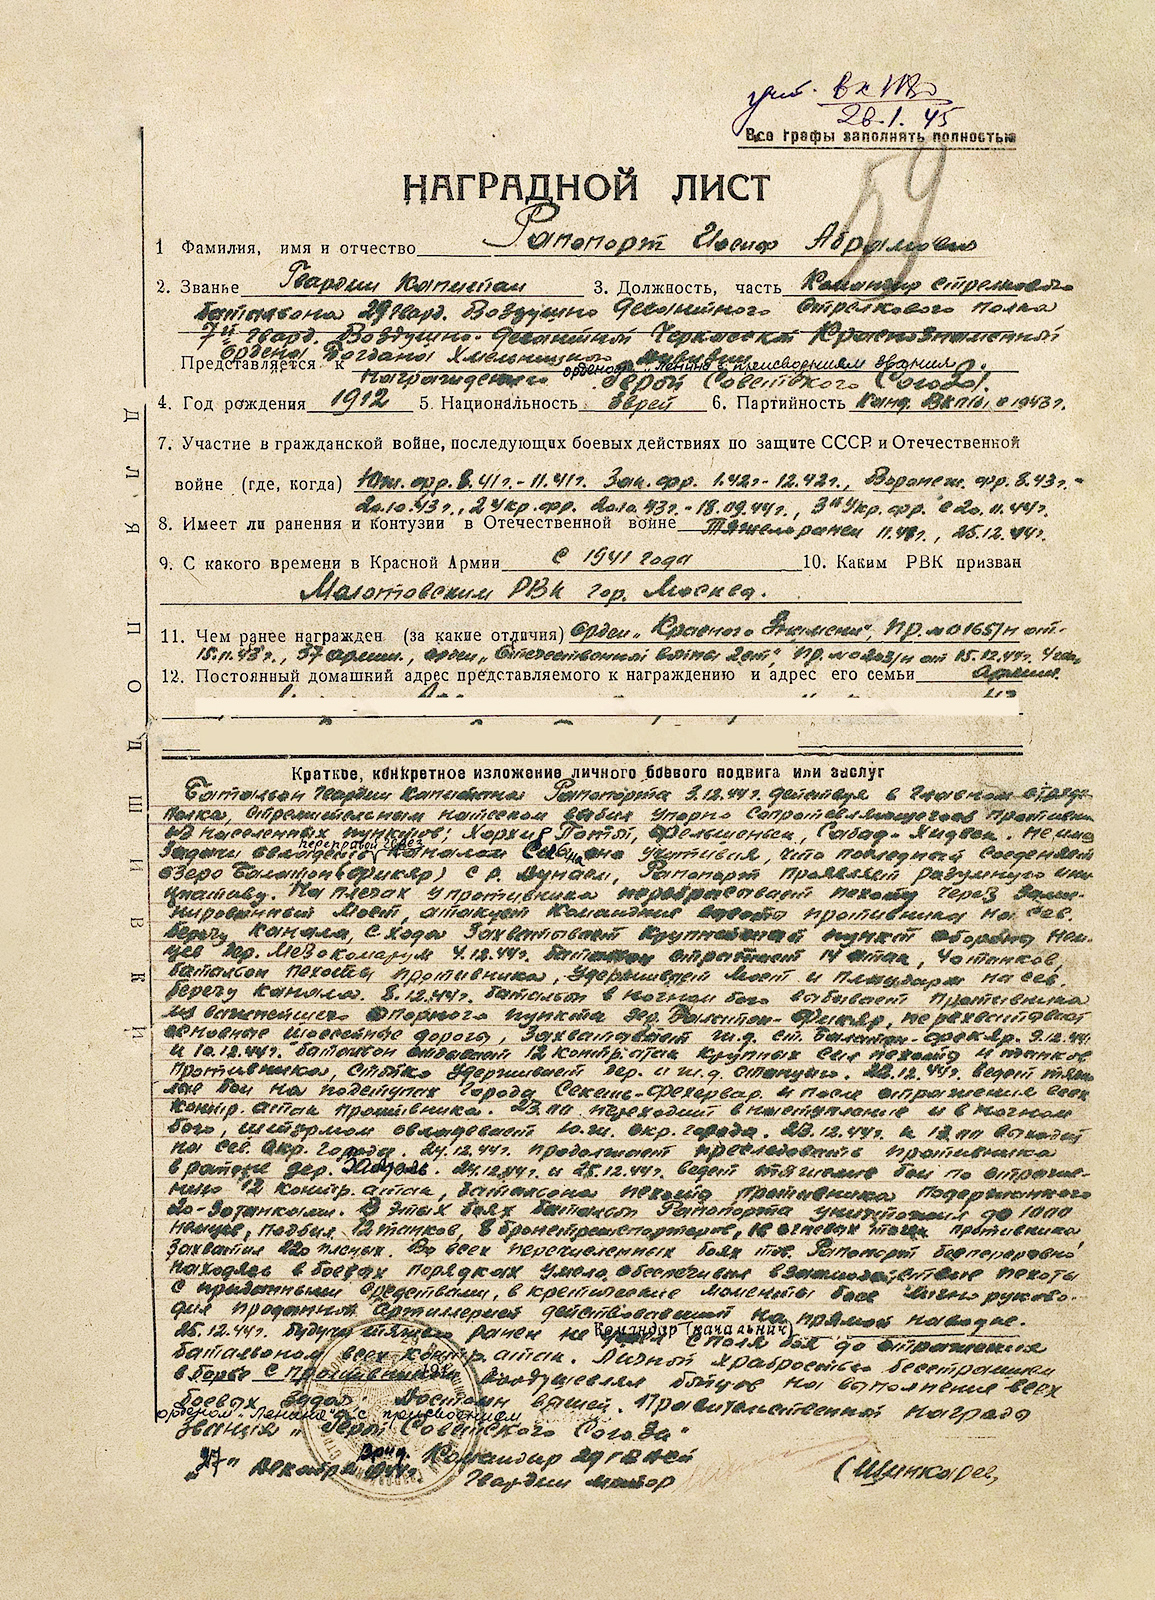 28.1.45
Все графы заполнять полностью
59
НАГРАДНОЙ ЛИСТ
1 Фамилия, имя и отчество Рапопорт Иосиф Абрамович
2. Званье Гвардии Капитан 3. Должность, часть Командир стрелкового
батальона 29 Гвард. Воздушно десантного Стрелкового полка
7й Гвард. Воздушно-десантной Черкасской Краснознаменной
Ордена Богдана Хмельницкого дивизии
Представляется к орденом "Ленина" с присвоением звания
награждению Герой Советского Союза.
4. Год рождения 1912 5. Национальность Еврей 6. Партийность Канд. ВКП(б) с 1943г.
7. Участие в гражданской войне, последующих боевых действиях по защите СССР и Отечественной
войне (где, когда) Юж. фр. 8.41г.-11.41г. Зак. фр. 1.42г-12.42г., Воронеж. фр. 8.43г.-
20.10.43г., 2 Укр. фр. 20.10.43г.-18.09.44г., 3й Укр. фр. с 20.11.44г.
8. Имеет ли ранения и контузии в Отечественной войне Тяжело ранен 11.41г., 25.12.44г.
9. С какого времени в Красной Армии с 1941 года 10. Каким РВК призван
Молотовским РВК гор. Москва.
11. Чем ранее награжден (за какие отличия) Орден "Красного Знамени", Пр. №0165/н от-
15.11.43г., 37 армии., орден "Отечественной войны 2 ст", Пр. №203/н от 15.12.44г. 4 гв.
12. Постоянный домашний адрес представляемого к награждению и адрес его семьи армии.
ДЛЯ ПОДШИВКИ
Краткое, конкретное изложение личного боевого подвига или заслуг
Батальон Гвардии Капитана Рапопорта 3.12.44г. действуя в главном
полка, стремительным натиском выбил упорно сопротивляющегося противника
из населенных пунктов;
переправой через
задачи овладение каналом учитывая, что последний соединяет
озеро Балатон с р. Дунаем, Рапопорт проявляет разумную ини-
циативу. На плечах у противника перебрасывает пехоту через замини-
рованный мост, атакует противника на сев.
берегу канала, с хода захватывает крупнейший пункт обороны нем-
цев дер. Мезокомаром 4.12.44г. батальон отражает 14 атак, 40 танков,
батальон пехоты противника, удерживает мост и плацдарм на сев.
берегу канала. 8.12.44г. батальон в ночном бою выбивает противника
из важнейшего опорного пункта дер. перехватывает
основные шоссейные дороги, захватывает ж.д. ст. 9.12.44г.
и 10.12.44г. батальон отбивает 12 контр.атак крупных сил пехоты и танков
противника, стойко удерживает дер. и ж.д. станцию. 22.12.44г. ведет тяже-
лые бои на подступах города Секеш-фехервар и после отражения всех
контр.атак противника. переходит в наступление и в ночном
бою, штурмом овладевает окр. города. 23.12.44г. к выходит
на сев. окр. города. 24.12.44г. продолжает преследовать противника
в районе дер. 24.12.44г и 25.12.44г. ведет тяжелые бои по отраже-
нию 12 контр.атак, батальона пехоты противника поддержанного
20-30 танками. В этих боях батальон Рапопорта уничтожил до 1000
немцев, подбил 12 танков, 8 бронетранспортеров, огневых точек противника,
захватил 220 пленных. Во всех перечисленных боях тов. Рапопорт беспрерывно
находясь в боевых порядках умело обеспечивал взаимодействие пехоты
с приданными средствами, в критические моменты боя лично руково-
дил приданной артиллерией действовавшей на прямой наводке.
Командир (начальник)
25.12.44г. будучи тяжело ранен не с поля боя до отражения
батальоном всех контр.атак. Личной храбростью бесстрашием
в борьбе с противником воодушевлял бойцов на выполнение всех
боевых задач Достоин высшей Правительственной награды
орденом "Ленина" с присвоением
звания "Герой Советского Союза"
Врид. Командир 29 гв.
"27" Декабря 1944г. Гвардии майор (Шинкарев)